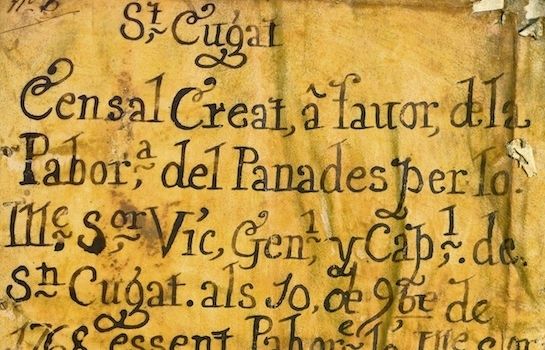 St. Cugat
Censal Creat, â favor, de la
Pabor.a del Panades per lo.
Ille. S.or Vic, Gen.l y Cap.l de.
Sn Cugat. als 10, de 9bre de
1768 essent Pabor.e lo Ille Sor